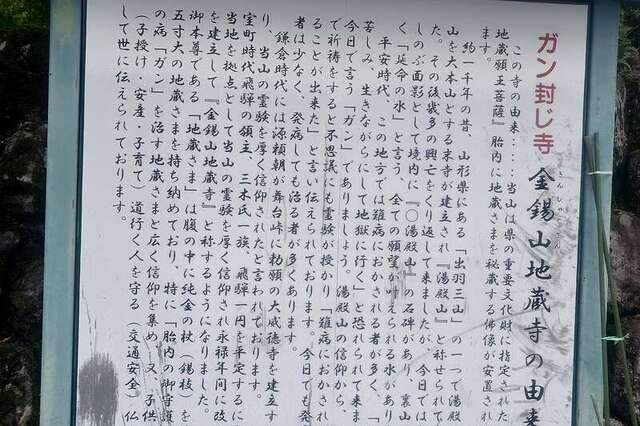 ガン封じ寺 金錫山地蔵寺の由来
この寺の由来‥‥当山は県の重要文化財に指定された
地蔵願王菩薩』胎内に地蔵さまを秘蔵する佛像が安置され
ます。
約一千年の昔、山形県にある「出羽三山」の一つで湯殿
山を大本山とする末寺が建立され『湯殿山』と称せられて
た。その後幾多の興亡をくり返して来ましたが、今日では
しのぶ面影として境内に『〇湯殿山』の石碑があり、裏山
く「延命の水」と言う、全ての願望が叶えられる水があり
平安時代、この地方では難病におかされる者が多く、「
苦しみ、生きながらにして地獄に行く」と恐れられて来ま
今日で言う「ガン」でありましょう。湯殿山の信仰から、
で祈祷をすると不思議にも霊験が授かり「難病におかされ
ることが出来た」と言い伝えられております。今日でも発
者は少なく、発病しても治る者が多くあります。
鎌倉時代には源頼朝が舞台峠に勅願の大威徳寺を建立す
り当山の霊験を厚く信仰されたと言われております。
室町時代飛騨の領主、三木氏一族、飛騨一円を平定するに
当地を拠点として当山の霊験を厚く信仰され永禄年間に改
を建立して『金錫山地蔵寺』と称するようになりました。
御本尊である「地蔵さま」は腹の中に純金の杖(錫杖)を
五寸大の地蔵さまを持ち納めており、特に「胎内の御守護
の病「ガン」を治す地蔵さまと広く信仰を集め、又、子供
(子授け・安産・子育て)道行く人を守る(交通安全)仏
して世に伝えられております。